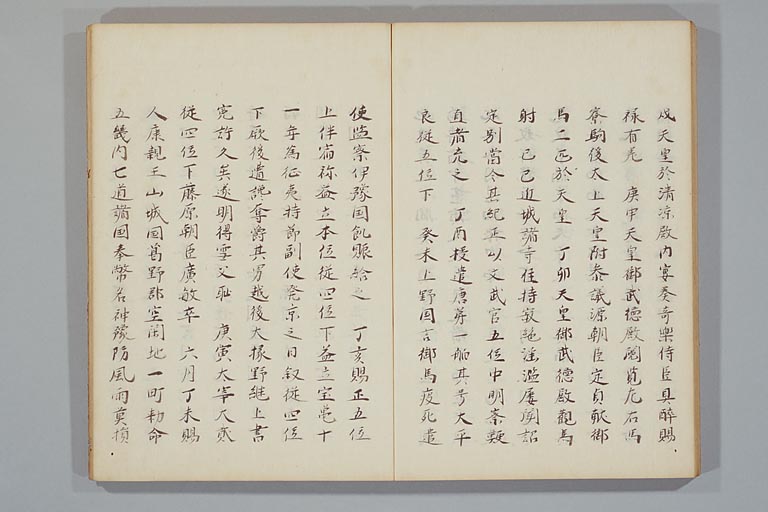 戌天皇於清凉殿内宴奏奇樂侍臣具醉賜
禄有差　庚申天皇御武德殿閲覧左右馬
寮駒後太上天皇附參議源朝臣定貢献御
馬二疋於天皇　丁卯天皇御武德殿觀馬
射　己巳近城諸寺住持寂絶淫濫屡聞詔
定別當令其紀正以文武官五位中明察難
直者充之　丁酉授遣唐第一舶其号大平
良従五位下　癸未上野国言御馬疫死遣
使監察伊豫国飢賑給之　丁亥賜正五位
上伴宿祢益立本位従四位下益立宝亀十
一年為征夷持節副使発京之日叙従四位
下厥後遭讒奪爵其男越後大掾野継上書
寃訴久矣遂明得雪父耻　庚寅大宰大貳
従四位下藤原朝臣廣敏卒　六月丁未賜
人康親王山城国葛野郡空閑地一町勅命
五畿内七道諸国奉幣名神豫防風雨莫損